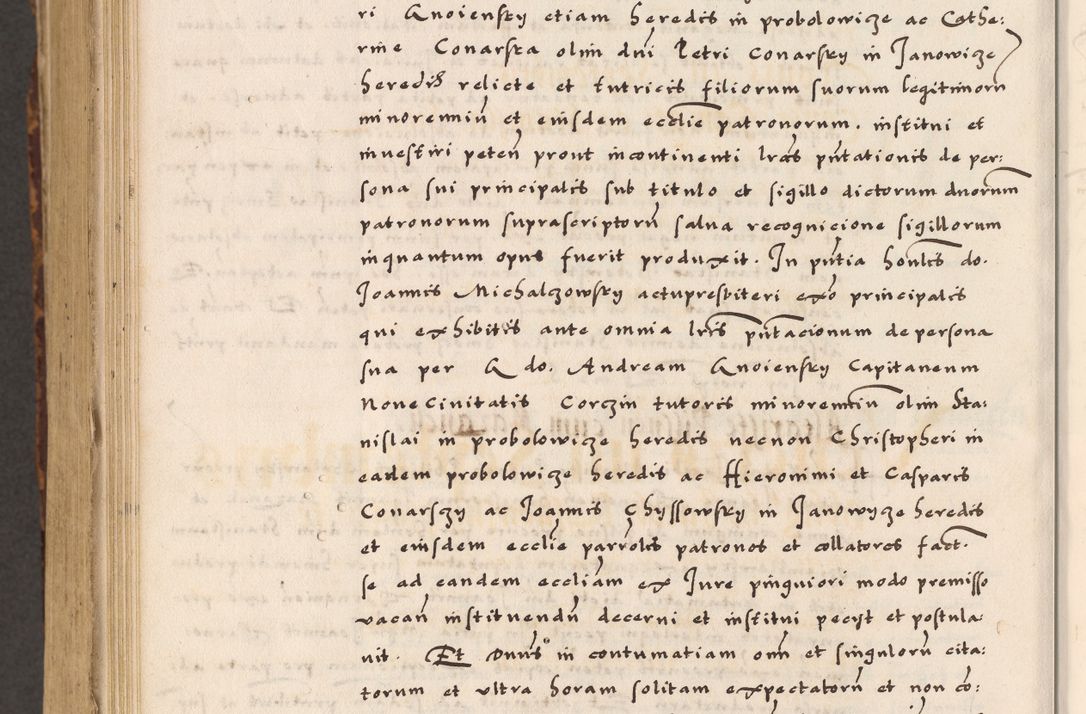 ri Gnoiensky etiam heredis in probolowicze ac Cathe:
rine Conarska olim dni Petri Conarsky in Janowicze
heredis relicte et tutricis filiorum suorum legitimorum
minorenniu et eiusdem ecclie patronorum. institui et
investiri peten prout incontinenti lras pntationis de per:
sona sui principalis sub titulo et sigillo dictorum dnorum
patronorum suprascriptoru salva recognicione sigillorum
inquantum opus fuerit produxit. In pntia honlis do.
Joannis Michalczowsky actupresbiteri ex° principalis
qui exhibitis ante omnia lris pntacionum de persona
sua per G do. Andream Gnoiensky Capitaneum
Nove Civitatis Corczin tutoris minorenniu olim Sta:
nislai in probolowicze heredis necnon Christopheri in
eadem probolowicze heredis ac Hieronimi et Casparis
Conarszy ac Joannis Chyssowsky in Janowycze heredis
et eiusdem ecclie parrolis patronos et collatores fact.
se ad eandem eccliam ex Jure pinguiori modo premisso
vacan instituendu decerni et institui peciyt et postula:
vit. Et Dnus in contumatiam omn et singuloru cita:
torum et ultra horam solitam expectatoru et non co: